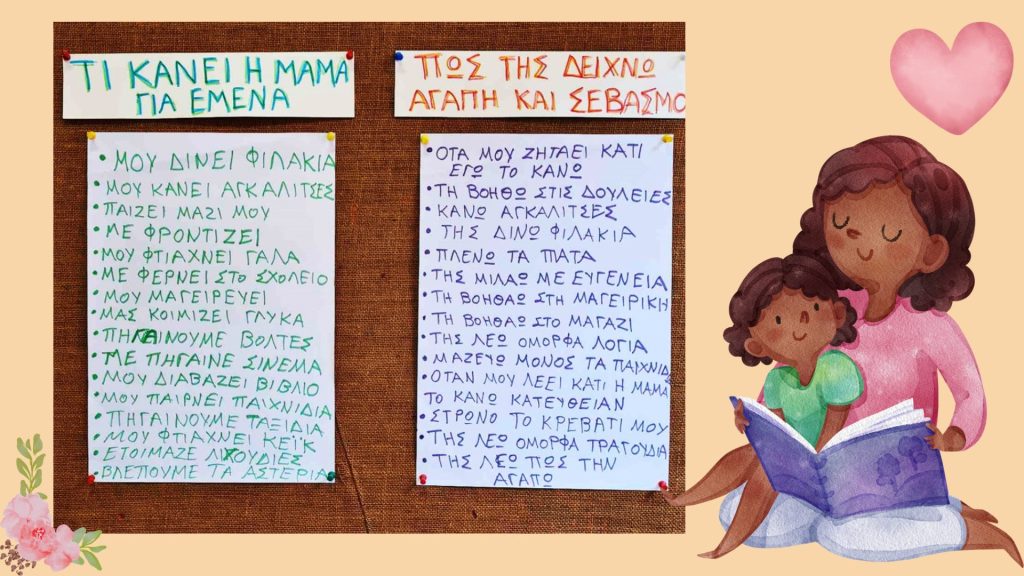 ΤΙ ΚΑΝΕΙ Η ΜΑΜΑ
ΓΙΑ ΕΜΕΝΑ
• ΜΟΥ ΔΙΝΕΙ ΦΙΛΑΚΙΑ
• ΜΟΥ ΚΑΝΕΙ ΑΓΚΑΛΙΤΣΕΣ
• ΠΑΙΖΕΙ ΜΑΖΙ ΜΟΥ
• ΜΕ ΦΡΟΝΤΙΖΕΙ
• ΜΟΥ ΦΤΙΑΧΝΕΙ ΓΑΛΑ
• ΜΕ ΦΕΡΝΕΙ ΣΤΟ ΣΧΟΛΕΙΟ
• ΜΟΥ ΜΑΓΕΙΡΕΥΕΙ
• ΜΑΣ ΚΟΙΜΙΖΕΙ ΓΛΥΚΑ
• ΠΗΓΑΙΝΟΥΜΕ ΒΟΛΤΕΣ
• ΜΕ ΠΗΓΑΙΝΕ ΣΙΝΕΜΑ
• ΜΟΥ ΔΙΑΒΑΖΕΙ ΒΙΒΛΙΟ
• ΜΟΥ ΠΑΙΡΝΕΙ ΠΑΙΧΝΙΔΙΑ
• ΠΗΓΑΙΝΟΥΜΕ ΤΑΞΙΔΙΑ
• ΜΟΥ ΦΤΙΑΧΝΕΙ ΚΕΪΚ
• ΕΤΟΙΜΑΖΕ ΛΙΧΟΥΔΙΕΣ
• ΒΛΕΠΟΥΜΕ ΤΑ ΑΣΤΕΡΙΑ
ΠΩΣ ΤΗΣ ΔΕΙΧΝΩ
ΑΓΑΠΗ ΚΑΙ ΣΕΒΑΣΜΟ
• ΟΤΑ ΜΟΥ ΖΗΤΑΕΙ ΚΑΤΙ
ΕΓΩ ΤΟ ΚΑΝΩ
• ΤΗ ΒΟΗΘΩ ΣΤΙΣ ΔΟΥΛΕΙΕΣ
• ΚΑΝΩ ΑΓΚΑΛΙΤΣΕΣ
• ΤΗΣ ΔΙΝΩ ΦΙΛΑΚΙΑ
• ΠΛΕΝΩ ΤΑ ΠΙΑΤΑ
• ΤΗΣ ΜΙΛΑΩ ΜΕ ΕΥΓΕΝΕΙΑ
• ΤΗ ΒΟΗΘΑΩ ΣΤΗ ΜΑΓΕΙΡΙΚΗ
• ΤΗ ΒΟΗΘΑΩ ΣΤΟ ΜΑΓΑΖΙ
• ΤΗΣ ΛΕΩ ΟΜΟΡΦΑ ΛΟΓΙΑ
• ΜΑΖΕΥΩ ΜΟΝΟΣ ΤΑ ΠΑΙΧΝΙΔ
• ΟΤΑΝ ΜΟΥ ΛΕΕΙ ΚΑΤΙ Η ΜΑΜΑ
ΤΟ ΚΑΝΩ ΚΑΤΕΥΘΕΙΑΝ
• ΣΤΡΩΝΟ ΤΟ ΚΡΕΒΑΤΙ ΜΟΥ
• ΤΗΣ ΛΕΩ ΟΜΟΡΦΑ ΤΡΑΓΟΥΔΙΑ
• ΤΗΣ ΛΕΩ ΠΩΣ ΤΗΝ
ΑΓΑΠΩ